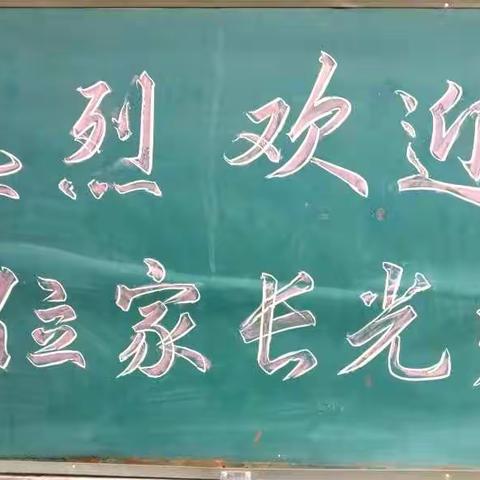 烈欢迎
位家长光